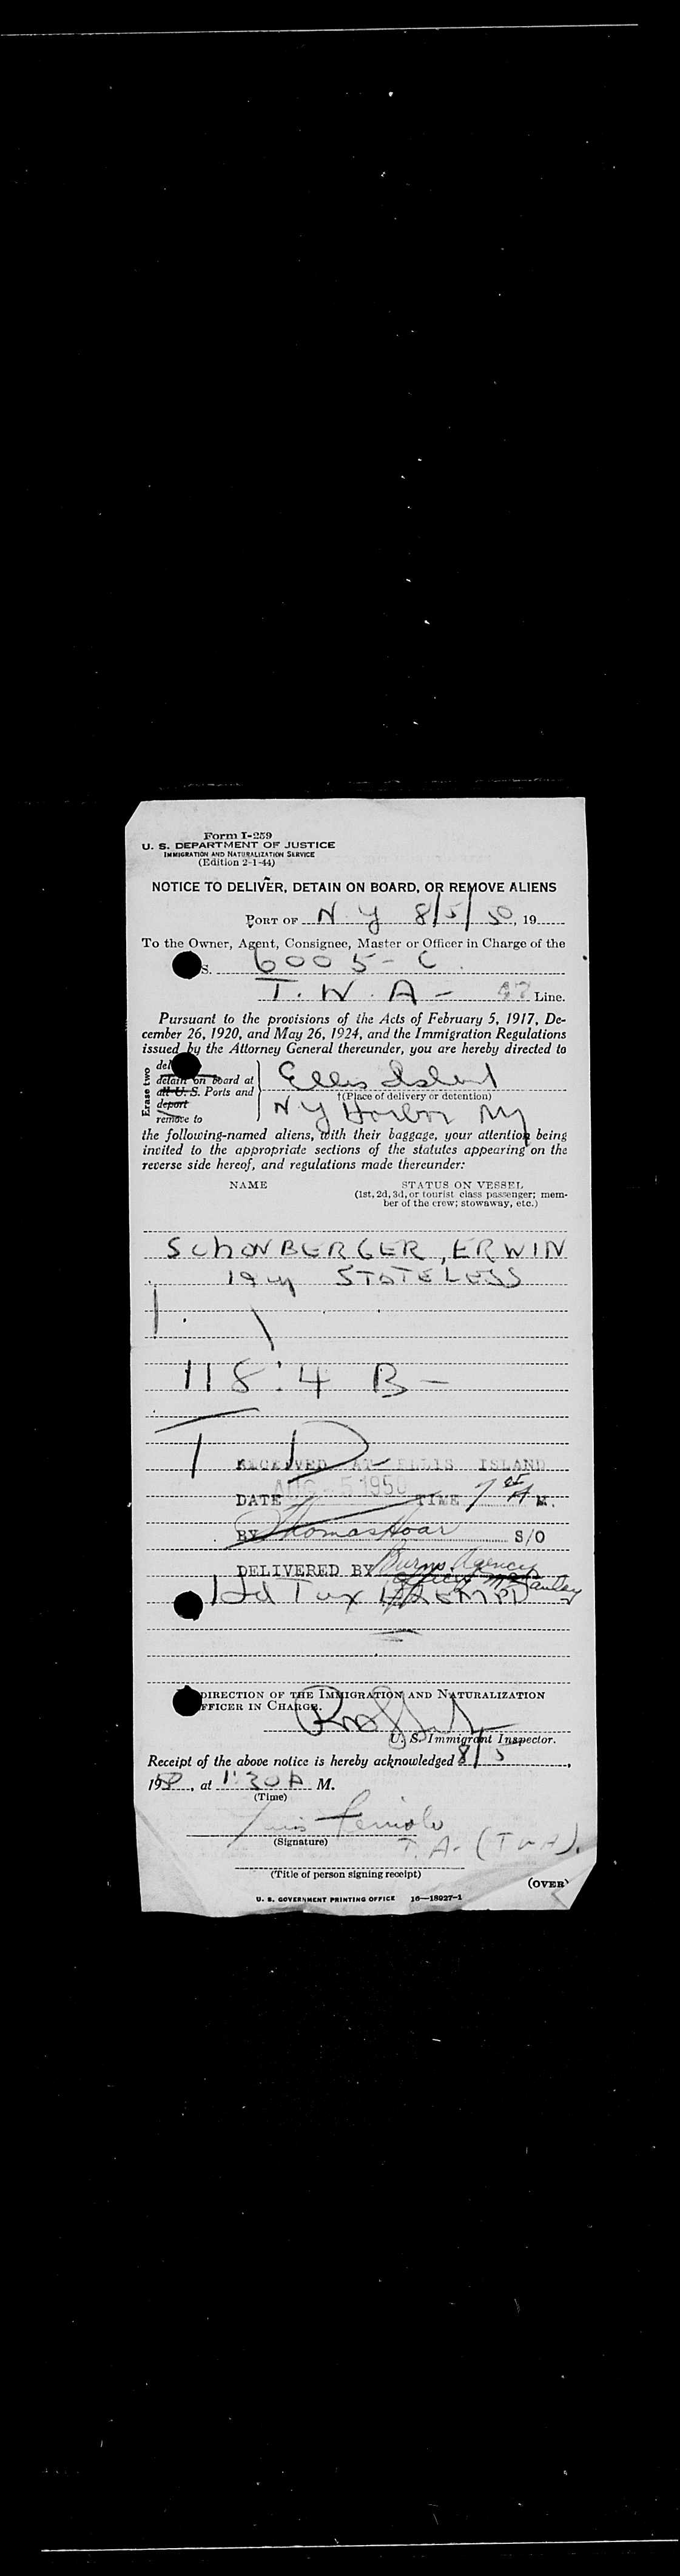 Form I-259
U. S. DEPARTMENT OF JUSTICE
IMMIGRATION AND NATURALIZATION SERVICE
(Edition 2-1-44)
NOTICE TO DELIVER, DETAIN ON BOARD, OR REMOVE ALIENS
PORT OF N Y 8/5/50, 19
To the Owner, Agent, Consignee, Master or Officer in Charge of the
S. 6005-C
T.W.A- Line.
Pursuant to the provisions of the Acts of February 5, 1917, De-
cember 26, 1920, and May 26, 1924, and the Immigration Regulations
issued by the Attorney General thereunder, you are hereby directed to
Erase two
del
detain on board at
all U. S. Ports and
deport
remove to
Ellis Island
†(Place of delivery or detention)
N Y Harbor NY
the following-named aliens, with their baggage, your attention being
invited to the appropriate sections of the statutes appearing on the
reverse side hereof, and regulations made thereunder:
NAME
STATUS ON VESSEL
(1st, 2d, 3d, or tourist class passenger; mem-
ber of the crew; stowaway, etc.)
SCHONBERGER, ERWIN
19 STATELESS
118:4 B-
T D
RECEIVED AT ELLIS ISLAND
AUG -5 1950
DATE TIME 7 A M.
BY Thomas Hoar S/O
DELIVERED BY Burns Agency
Hd Tax
DIRECTION OF THE IMMIGRATION AND NATURALIZATION
OFFICER IN CHARGE.
U. S. Immigrant Inspector.
Receipt of the above notice is hereby acknowledged 8/5,
1950, at 1:30 A M.
(Time)
(Signature)
T.A. (TWA).
(Title of person signing receipt)
(OVER)
U. S. GOVERNMENT PRINTING OFFICE 16—18927-1